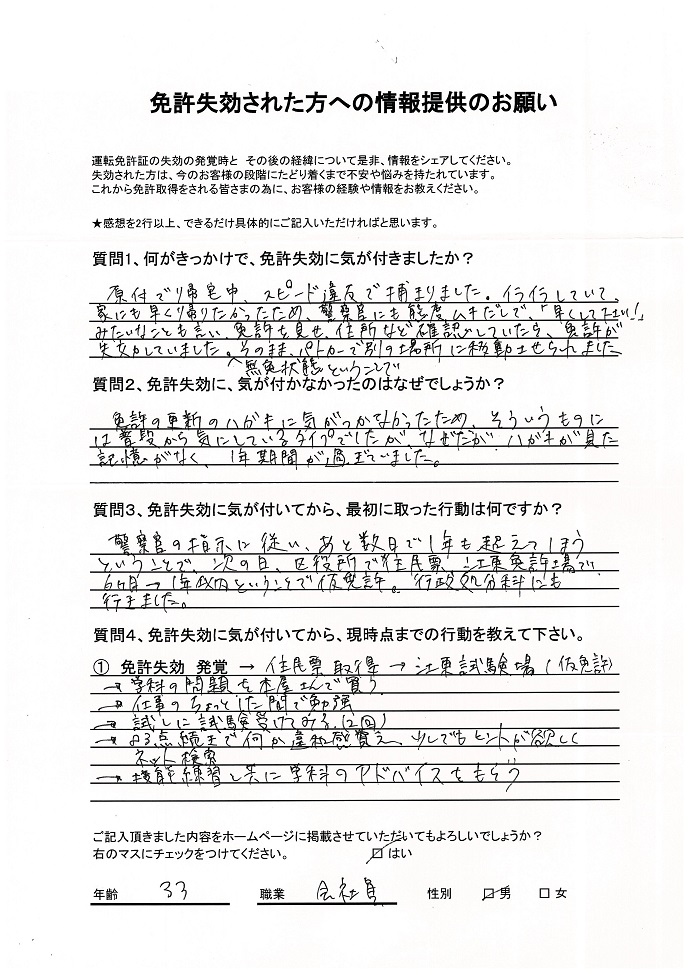 免許失効された方への情報提供のお願い
運転免許証の失効の発覚時と その後の経緯について是非、情報をシェアしてください。
失効された方は、今のお客様の段階にたどり着くまで不安や悩みを持たれています。
これから免許取得をされる皆さまの為に、お客様の経験や情報をお教えください。
★感想を2行以上、できるだけ具体的にご記入いただければと思います。
質問1、何がきっかけで、免許失効に気が付きましたか？
原付で帰宅中、スピード違反で捕まりました。イライラしていて、
家にも早く帰りたかったため、警察官にも態度ムキだしで、「早くして下さい！」
みたいなことも言い、免許を見せ、住所など確認していたら、免許が
失効していました。そのまま、パトカーで別の場所に移動させられました
無免状態ということで
質問2、免許失効に、気が付かなかったのはなぜでしょうか？
免許の更新のハガキに気がつかなかったため、そういうものに
は普段から気にしているタイプでしたが、なぜだが ハガキが見た
記憶がなく、1年期間が過ぎていました。
質問3、免許失効に気が付いてから、最初に取った行動は何ですか？
警察官の指示に従い、あと数日で1年も越えてしまう
ということで、次の日、区役所で住民票、江東免許場で、
6ヶ月→1年以内ということで仮免許。行政処分科にも
行きました。
質問4、免許失効に気が付いてから、現時点までの行動を教えて下さい。
① 免許失効 発覚 → 住民票取得 → 江東試験場（仮免許）
→ 学科の問題を本屋さんで買う
→ 仕事のちょっとした間で勉強
→ 試しに試験受けてみる（2回）
→ 88点続きで何か違和感覚え、少しでもヒントが欲しく
ネット検索
→ 技能練習と共に学科のアドバイスをもらう
ご記入頂きました内容をホームページに掲載させていただいてもよろしいでしょうか？
右のマスにチェックをつけてください。 ☑はい
年齢 33 職業 会社員 性別 ☑男 □女